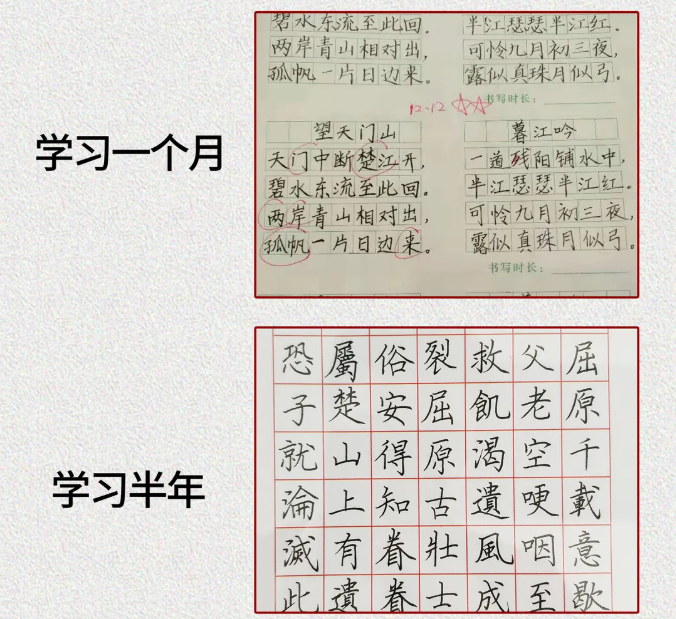 学习一个月
碧水东流至此回。
两岸青山相对出,
孤帆一片日边来。
半江瑟瑟半江红。
可怜九月初三夜,
露似真珠月似弓。
书写时长:
12.12
望天门山
天门中断楚江开,
碧水东流至此回。
两岸青山相对出,
孤帆一片日边来。
暮江吟
一道残阳铺水中,
半江瑟瑟半江红。
可怜九月初三夜,
露似真珠月似弓。
书写时长:
学习半年
屈原千載意歇
父老空哽咽至
救飢渴遺風成
裂屈原古壯士
俗安得知眷眷
屬楚山上有遺
恐子就淪滅此